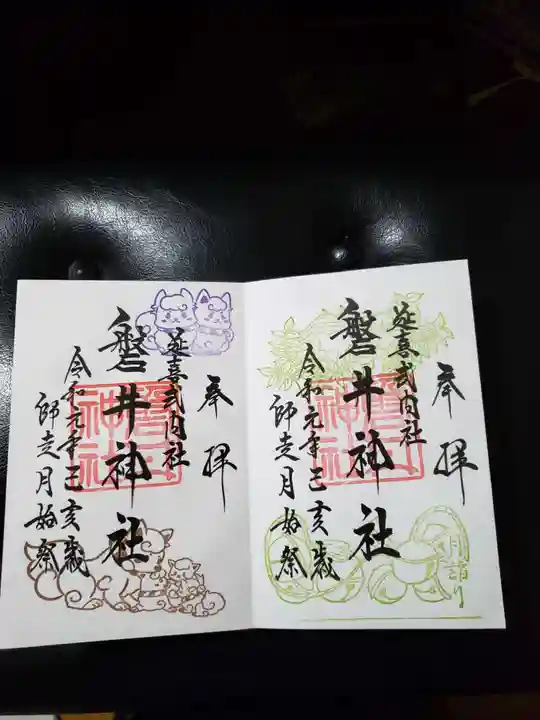 奉拝
延喜式内社
磐井神社
令和元年己亥歳
師走月始祭
磐井神社
月詣り
奉拝
延喜式内社
磐井神社
令和元年己亥歳
師走月始祭
磐井神社